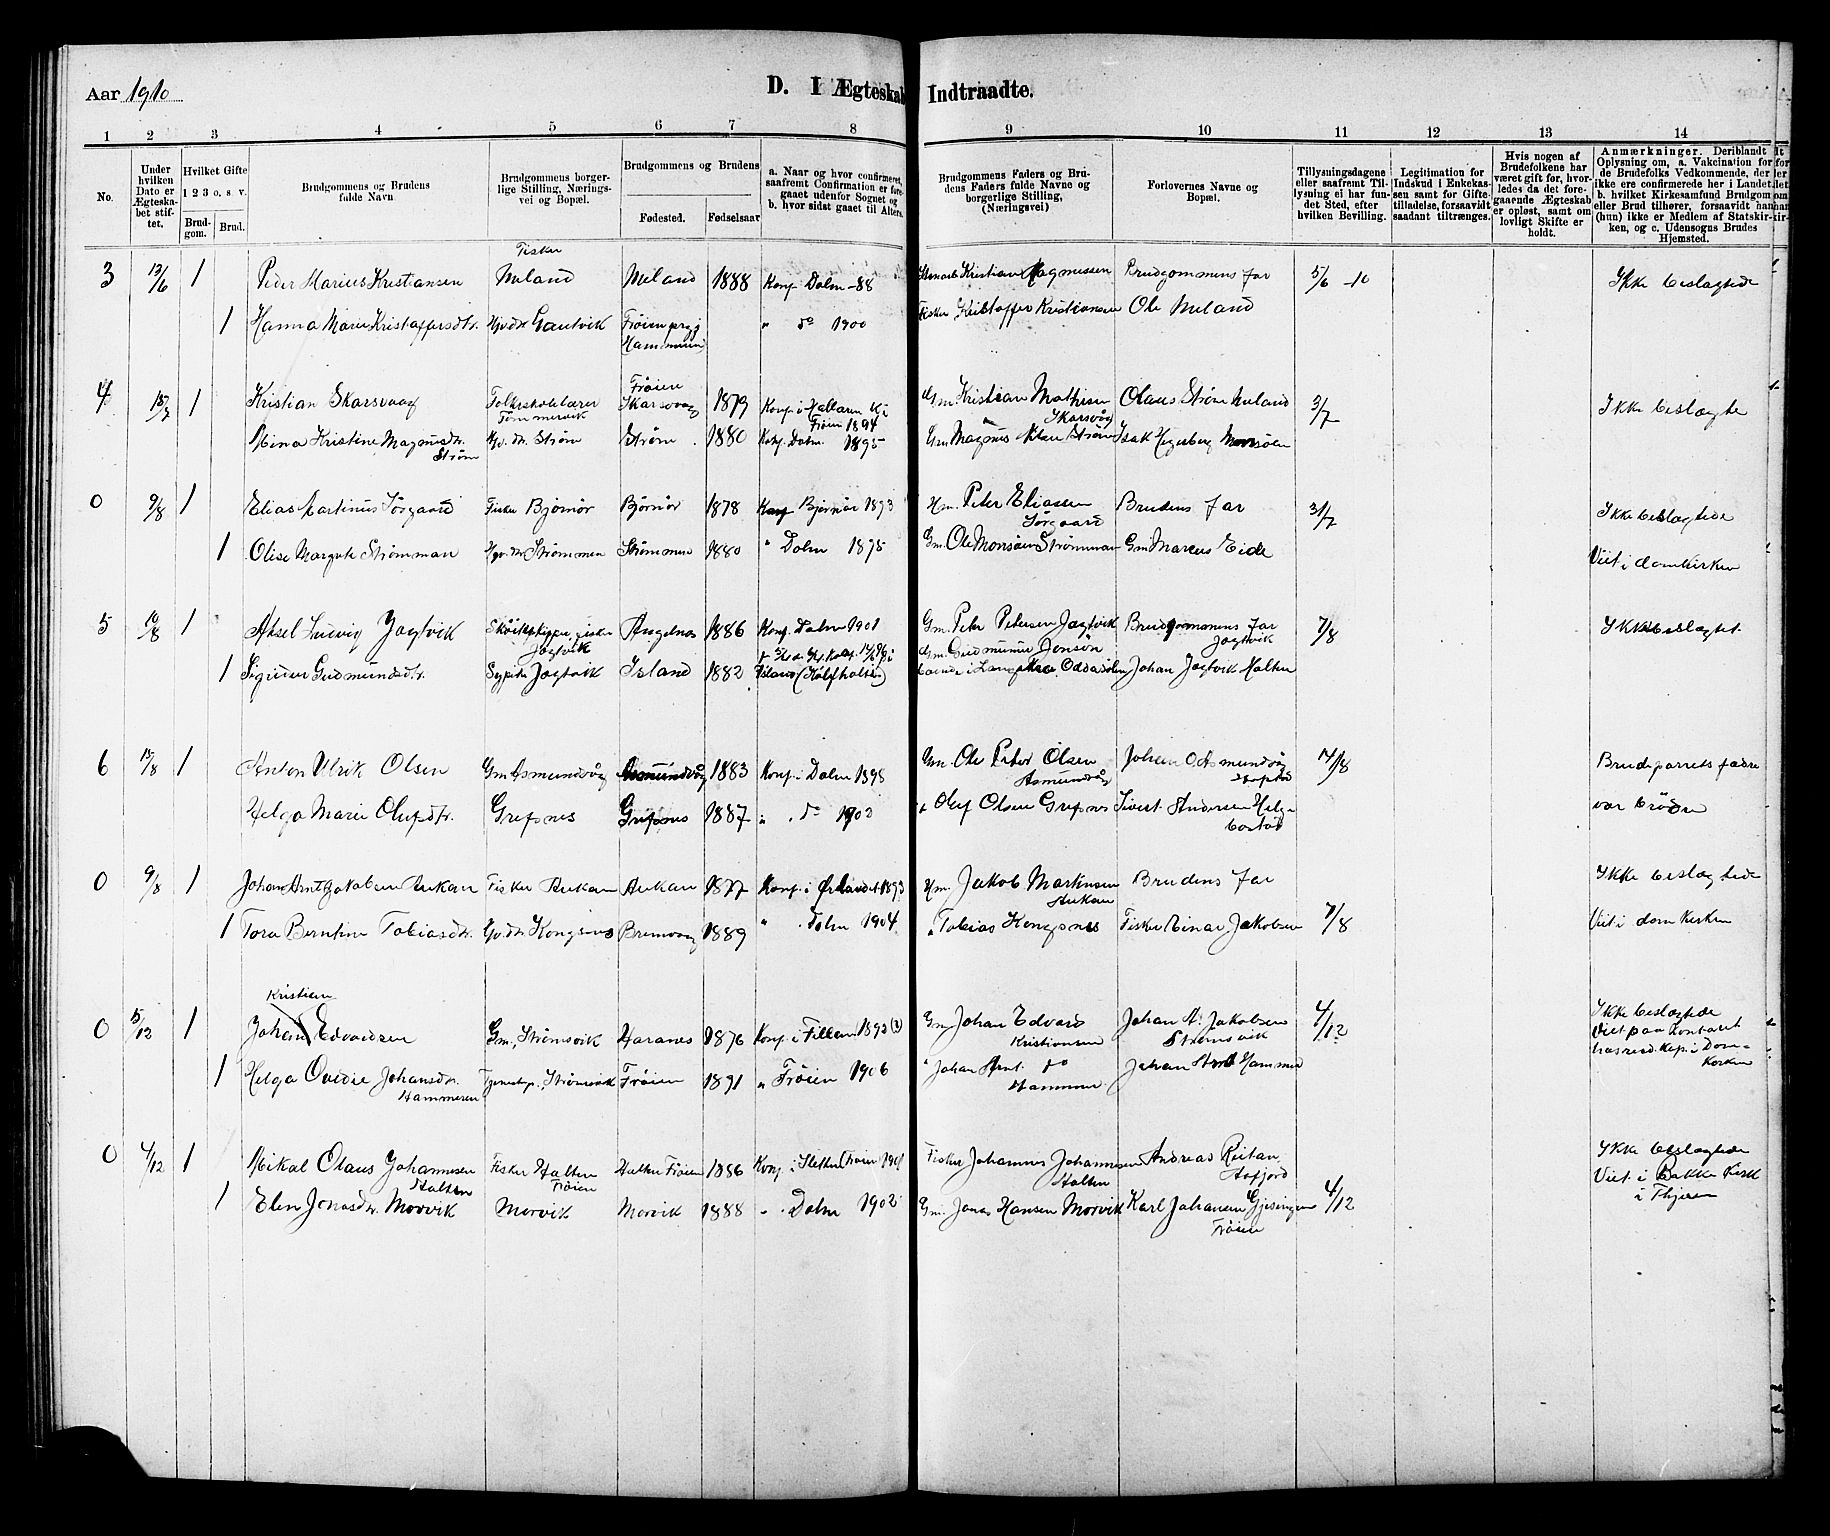 Aar 1910
D. I Ægteskab Indtraadte.
1 2 3 4 5 6 7 8 9 10 11 12 13 14
No.
Under hvilken Dato er Ægteskabet stiftet.
Hvilket Gifte 1 2 3 o. s. v.
Brudgom. Brud.
Brudgommens og Brudens fulde Navn
Brudgommens borgerlige Stilling, Næringsvei og Bopæl.
Brudgommens og Brudens
Fødested. Fødselsaar
a. Naar og hvor confirmeret, saafremt Confirmation er foregaaet udenfor Sognet og b. hvor sidst gaaet til Alters.
Brudgommens Faders og Brudens Faders fulde Navne og borgerlige Stilling, (Næringsvei)
Forlovernes Navne og Bopæl.
Tillysningsdagene eller saafremt Tillysning ei har fundet Sted, efter hvilken Bevilling.
Legitimation for Indskud i Enkekassen samt for Giftetilladelse, forsaavidt saadant tiltrænges.
Hvis nogen af Brudefolkene har været gift før, hvorledes da det foregaaende Ægteskab er opløst, samt om lovligt Skifte er holdt.
Anmærkninger. Deriblandt Oplysning om, a. Vakcination for de Brudefolks Vedkommende, der ikke ere confirmerede her i Landet, b. hvilket Kirkesamfund Brudgom eller Brud tilhører, forsaavidt han (hun) ikke er Medlem af Statskirken, og c. Udensogns Brudes Hjemsted.
3 13/6 1 Peder Marius Kristiansen Fisker Uvland 1888 Konf Dolm -88 Kristian Magnussen Brudgommens far 5/6 -10 Ikke beslægtede
1 Hanna Marie Kristoffersdtr. Gv.dtr. Gautvik Frøien " do 1900 Fisker Kristoffer Kristiansen Ole
4 1 Kristian Skarsvaag Folkeskolelærer Frøien Skarsvaag 1879 Konf. i Frøien 1894 Gm Kristian Mathisen Skarsvåg Olaus Strøm 3/7 Ikke beslægte
Nina Kristine Magnusdtr. Strøm Gv. dtr. Strøm Strøm 1880 Konf. Dolm 1895 Gm Magnus Strøm Isak
0 9/8 1 Elias Martinus Sørgaard Fisker Bjørnør Bjørnør 1878 Konf Bjørnør 1893 Hm. Peter Eliassen Sørgaard Brudens far 31/7 Ikke beslægtede
1 Olise Margrete Strømman Gv. dtr Strømmen Strømmen 1880 " Dolm 1895 Gm. Ole Monsøn Strømman Gm Marcus Eide Viet i domkirken
5 10/8 1 Aksel Ludvig Jøgtvik Jøgtvik 1886 Konf. Dolm 1901 Gm. Peter Petersen Jøgtvik Brudgommens far Jøgtvik 7/8 Ikke beslægtet
1 Gudmundsdtr. Jøgtvik Island 1882 Island Gm. Gudmund Jonsøn Johan Jøgtvik
6 15/8 1 Anton Ulrik Olsen Gm Asmundvåg Asmundvåg 1883 Konf. i Dolm 1898 Gm. Ole Peter Olsen Asmundvåg Johan O Asmundvåg 14/8 Brudeparrets fædre
Helga Marie Olufsdtr. Grefsnes Grefsnes 1887 " do 1902 " Oluf Olsen Grefsnes Sivert Andersen var brødre
0 9/8 1 Johan Arnt Jakobsen Aukan Fisker Aukan Aukan 1877 Konf. i Ørlandet 1893 Hm. Jakob Martinsen Aukan Brudens far Ikke beslægtede
1 Tora Berntine Tobiasdtr. Gv. dtr. Kongsnes 1889 " Dolm 1904 " Tobias Kongsnes Fisker Einar Jakobsen 7/8 Viet i domkirken
0 5/12 1 Kristian Edvardsen Gm. Strømsvik 1876 Konf. i Fillan 1892 (?) Gm Johan Edvard Kristiansen Johan A. Jakobsen Strømsvik 4/12 Ikke beslægtede Viet paa kontoret hos resd. Kap. i Domkirken
1 Helga Ovedie Johansdtr. Hammeren Strømsvik Frøien 1891 " Frøien 1906 " Johan Arnt do Hammer Johan Hammer
0 4/12 1 Mikal Olaus Johannesen Halten Fisker Halten Frøien Halten Frøien 1886 Konf. i Sletten Frøien 1901 Fisker Johannes Johannesen Halten Andreas Reitan Aafjord Ikke beslægtede
1 Elen Jonasdtr. Morvik Morvik Morvik 1888 " Dolm 1902 Gm. Jonas Hansen Morvik Karl Johansen Gjæsingen Frøien 4/12 Viet i Bakke Kirke i Thjem